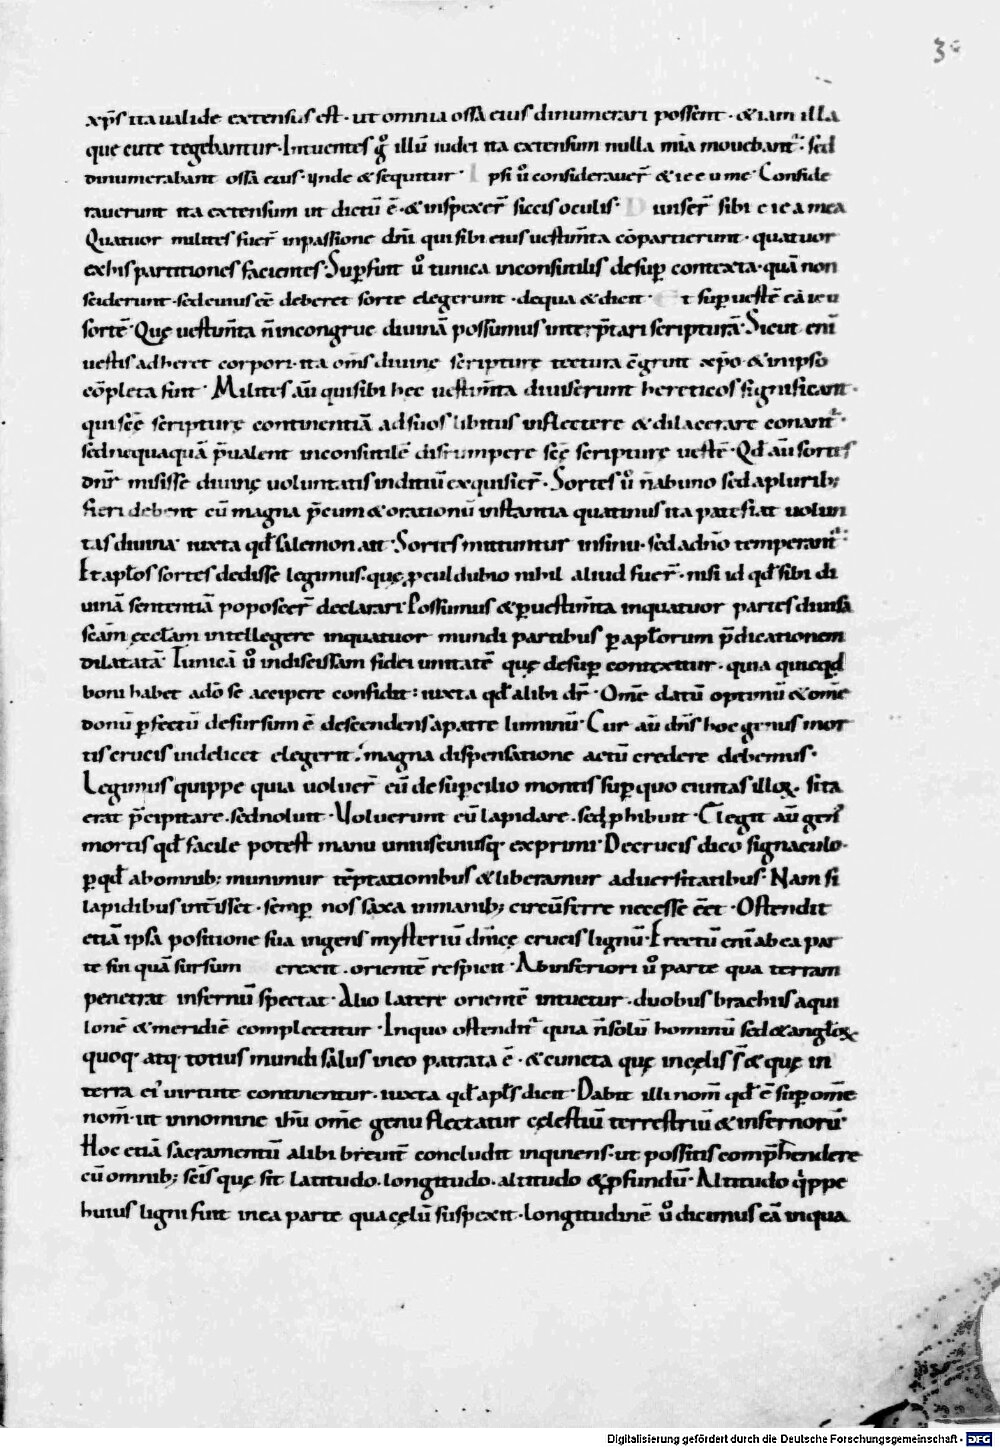 3
xp̄s ita ualide extensus est · ut omnia ossa eius dinumerari possent · & iam illa
que cute tegebantur · Intuentes g̊ illū iudei ita extensum nulla mīa mouebant᷑ · sed
dinumerabant ossa eius · ỹnde & sequitur · I psi ů considerauer̄ & i c e u me · Conside
rauerunt ita extensum ut dictū ē · & inspexer̄ siccis oculis · D iuiser̄ sibi e i e a mea
Quatuor milites fuer̄ in passione dn̄i qui sibi eius uestim̄ta cōpartierunt · quatuor
ex his partitiones facientes · Sup̱fuit ů tunica inconsutilis desup̱ contexta · quā non
sciderunt · sed cuius eē deberet sorte elegerunt · de qua & dicit · E t sup̱ uestē ea ieu
sortē · Quę uestim̄ta n̄ incongrue diuinā possumus interp̄tari scripturā · Sicut eni᷑
uestis adheret corpori · ita om̄s diuinę scripturę textura ēgruit xp̄o · & in ipso
cōpleta sunt · Milites aū qui sibi hec uestim̄ta diuiserunt hereticos significant ·
qui scę̄ scripturę continentiā ad suos libitus inflectere & dilacerare conant᷑ ·
sed nequaquā p̄ualent inconsutilē disrumpere scę̄ scripturę uestē · Qd̄ aū sortes
dn̄r misisse diuinę uoluntatis inditiū exquisier̄ · Sortes ů n̄ ab uno sed a plurib;
fieri debent cū magna p̄cum & orationū instantia quatinus ita patefiat uolun
tas diuina · iuxta qd̄ salemon ait · Sortes mittuntur in sinu · sed a dn̄o temperant᷑ ·
Et apl̄os sortes dedisse legimus · quę p̱cul dubio nihil aliud fuer̄ · nisi id qd̄ sibi di
uinā sententiā poposcer̄ declarari · Possumus & p̱ uestim̄ta in quatuor partes diuisa
scām ęccl̄am intellegere in quatuor mundi partibus p̱ apl̄orum p̄dicationem
dilatatā · Tunicā ů indiscissam fidei unitatē quę desup̱ contexitur · quia quicqd̄
boni habet a dō se accipere confidit : iuxta qd̄ alibi dr̄ · Om̄e datū optimū & om̄e
donū p̱fectū desursum ē descendens a patre luminū · Cur aū dn̄s hoc genus mor
tis crucis uidelicet elegerit · magna dispensatione actū credere debemus ·
Legimus quippe quia uoluer̄ eū de sup̱cilio montis sup̱ quo ciuitas illoꝝ sita
erat p̄cipitare · sed noluit · Voluerunt eū lapidare · sed p̱hibuit · Elegit aū gen᷒
mortis qd̄ facile potest manu uniuscuiusq; exprimi · De crucis dico signaculo ·
p̱ qd̄ ab omnib; munimur tēptationibus & liberamur aduersitatibus · Nam si
lapidibus int̄isset · semp̱ nos saxa in manib; circūferre necesse eēt · Ostendit
etiā ipsa positione sua ingens mysteriū dn̄icę crucis lignū · Erectū eni᷑ ab ea par
te sin quā sursum erexit · orientē respicit · Ab inferiori ů parte qua terram
penetrat infernū spectat · Alio latere orientē intuetur · duobus brachiis aqui
lonē & meridiē complectitur · In quo ostendit᷑ quia n̄ solū hominū sed & angl̄oꝝ
quoq; atq; totius mundi salus in eo patrata ē · & cuncta quę in cęlis s̄t & quę in
terra ei᷒ uirtute continentur · iuxta qd̄ apl̄s dicit · Dabit illi nom̄ qd̄ ē sup̱ om̄e
nom̄ · ut in nomine ih̄u om̄e genu flectatur cęlestiū terrestriū & infernorū ·
Hoc etiā sacramentū alibi breuit̄ concludit inquiens · ut possitis comp̄hendere
cū omnib; scīs quę sit latitudo · longitudo · altitudo & p̱fundū · Altitudo q̇ppe
huius ligni sunt in ea parte qua cęlū suspexit · longitudinē ů dicimus eā in qua
Digitalisierung gefördert durch die Deutsche Forschungsgemeinschaft - DFG